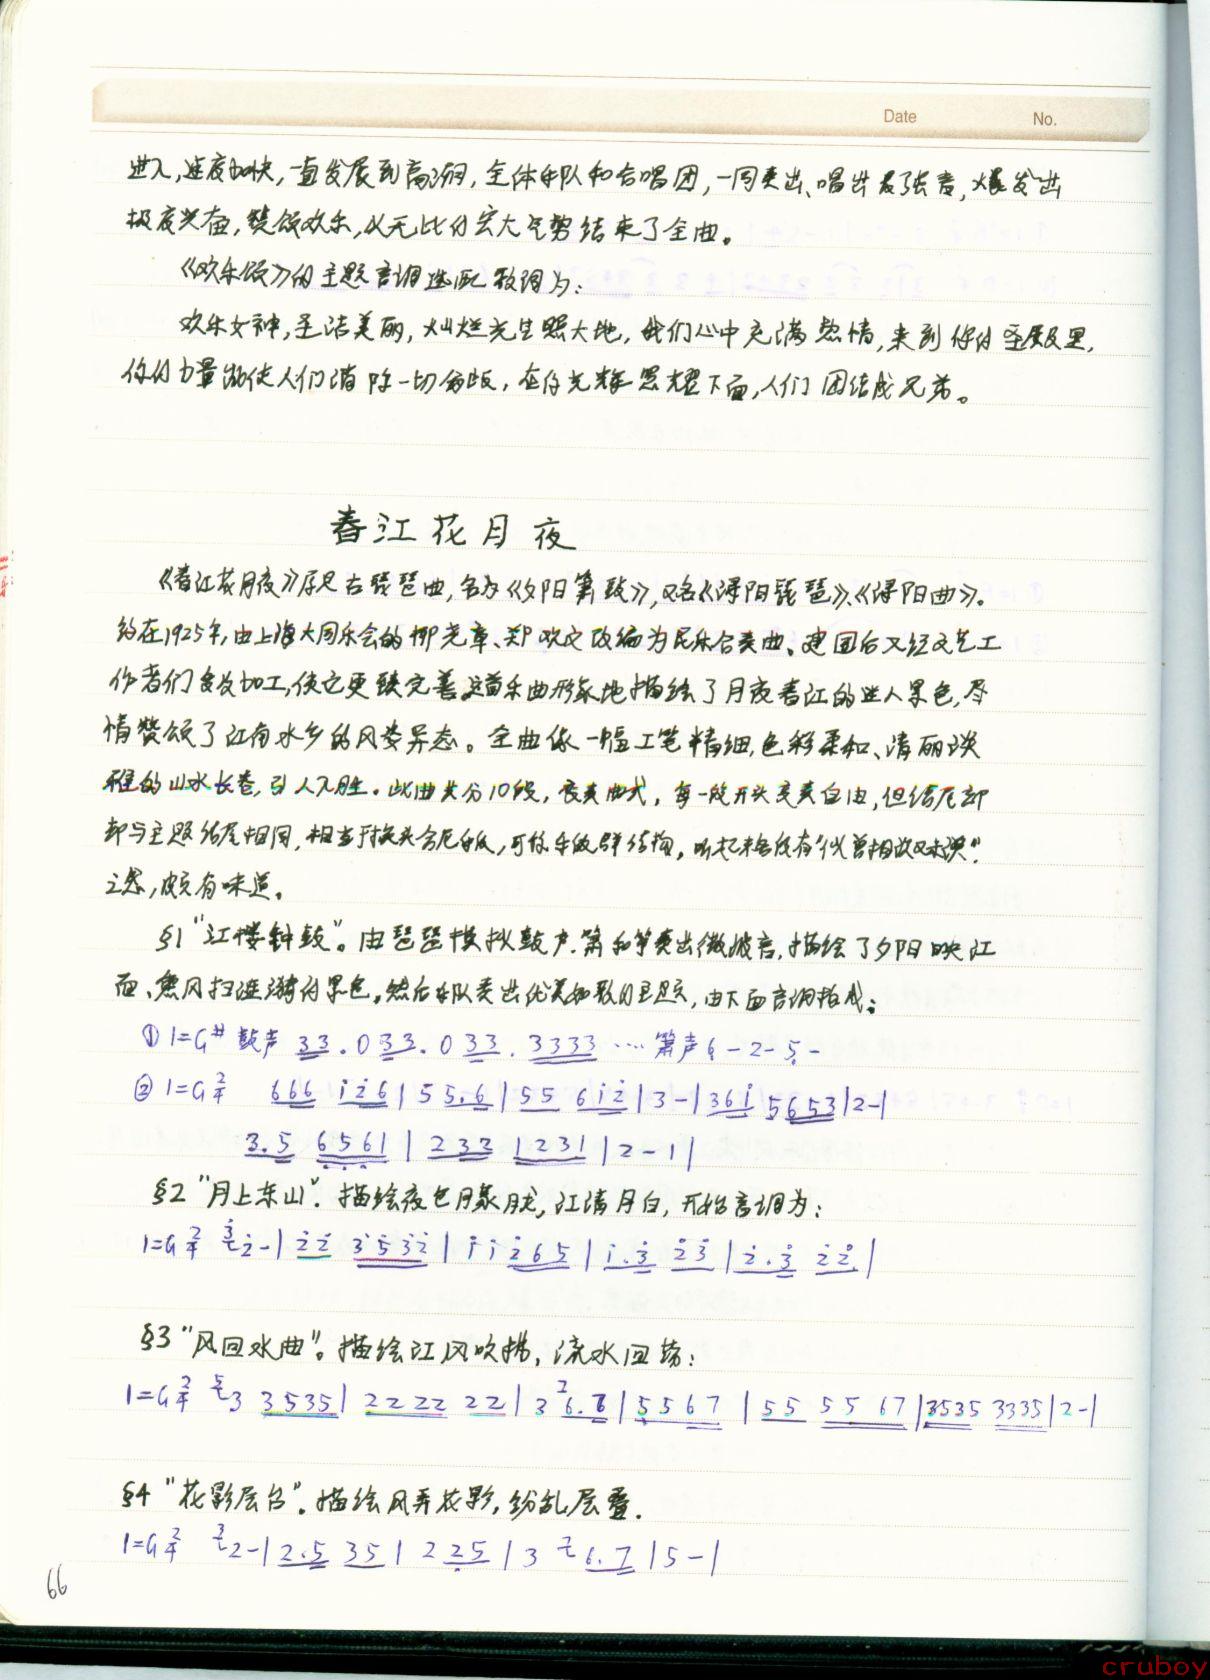 Date No.
进入,速度加快,一直发展到高潮,全体乐队和合唱团,一同奏出、唱出最强音,爆发出
极度兴奋,赞颂欢乐,以无比的宏大气势结束了全曲。
《欢乐颂》的主题音调选配歌词为:
欢乐女神,圣洁美丽,灿烂光芒照大地,我们心中充满热情,来到你的圣殿里,
你的力量能使人们消除一切分歧,在你光辉照耀下面,人们团结成兄弟。
春江花月夜
《春江花月夜》原是古琵琶曲,名为《夕阳箫鼓》,又名《浔阳琵琶》、《浔阳曲》。
约在1925年,由上海大同乐会的柳尧章、郑欣文改编为民乐合奏曲、建国后又经文艺工
作者们多次加工,使它更臻完善。这首乐曲形象地描绘了月夜春江的迷人景色,尽
情赞颂了江南水乡的风姿异态。全曲像一幅工笔精细,色彩柔和、清丽淡
雅的山水长卷,引人入胜。此曲共分10段,变奏曲式,每一段开头变奏自由,但结尾部
却与主题结尾相同,相当于换头合尾手法,可称乐段群结构,听起来各段有“似曾相识又未识”
之感,颇有味道。
§1“江楼钟鼓”。由琵琶模拟鼓声.箫和筝奏出微波音,描绘了夕阳映江
面、熏风扫涟漪的景色。然后乐队奏出优美如歌的主题,由下面音调构成:
① 1=G# 鼓声 33.033.033.3333 ···· 箫声6-2-5-
② 1=G 2/4 666 i̇2̇6|55.6|55 6i̇2̇|3-|36i̇ 5653|2-|
3.5 6561|232 1231|2-1|
§2“月上东山”.描绘夜色月朦胧,江清月白,开始音调为:
1=G 2/4 3̇2̇-|2̇2̇ 3̇5̇3̇2̇|i̇i̇2̇65|i̇.3̇ 2̇3̇|2̇.3̇ 2̇2̇|
§3“风回水曲”。描绘江风吹拂,流水回荡:
1=G 2/4 53 3535|2222 22|3 26.7|5567|55 5567|3535 3335|2-|
§4“花影层台”.描绘风弄花影,纷乱层叠.
1=G 2/4 32-|2.5 35|225|3 76.7|5-|
66
cruboy